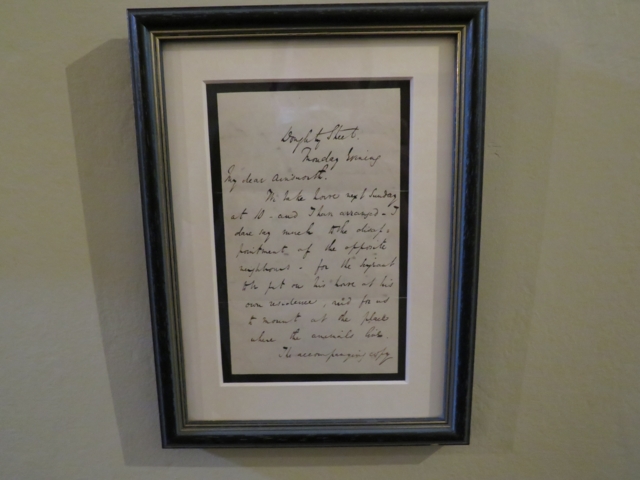 Doughty Street.
Monday Evening
My dear Ainsworth.
We take horse next Sunday
at 10 - and I have arranged - I
dare say much to the disap-
pointment of the opposite
neighbours - for the
to put on his house at his
own residence, and for us
to mount at the place
where the animals live.
The accompanying copy